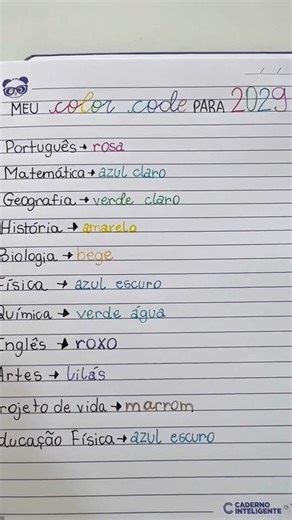 MEU color code PARA 2029
Português → rosa
Matemática → azul claro
Geografia → verde claro
História → amarelo
Biologia → bege
Física → azul escuro
Química → verde água
Inglês → roxo
Artes → lilás
rojeto de vida → marrom
ducação Física → azul escuro
CADERNO
INTELIGENTE